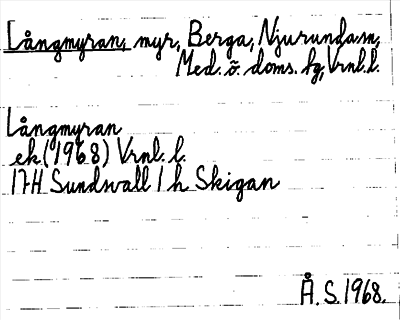 Långmyran, myr, Berga, Njurunda sn,
Med. ö. doms. hg, Vrnl. l.
Långmyran
ek (1968) Vrnl. l.
17H Sundsvall 1 h Skigan
Å. S. 1968.